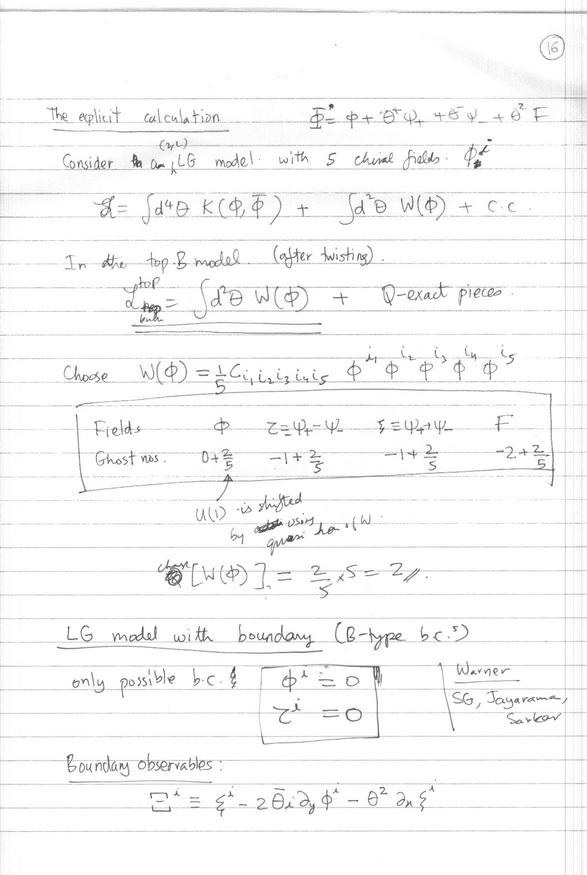 16
The explicit calculation Φ = φ + θ⁺ψ₊ + θ⁻ψ₋ + θ² F
Consider an (2,2) LG model with 5 chiral fields. Φⁱ
ℒ = ∫d⁴θ K(Φ, Φ̄) + ∫d²θ W(Φ) + c.c.
In the top. B model (after twisting).
ℒ^top_bulk = ∫d²θ W(Φ) + Q-exact pieces.
Choose W(Φ) = 1/5 C_{i₁i₂i₃i₄i₅} Φ^{i₁} Φ^{i₂} Φ^{i₃} Φ^{i₄} Φ^{i₅}
Fields φ τ ≡ ψ₊ - ψ₋ ξ ≡ ψ₊ + ψ₋ F
Ghost nos. 0 + 2/5 -1 + 2/5 -1 + 2/5 -2 + 2/5
U(1) is shifted
by using
quasi ho. of W.
[W(Φ)] = 2/5 × 5 = 2 //.
LG model with boundary (B-type b.c.ˢ)
only possible b.c. φⁱ = 0
τⁱ = 0
Warner
SG, Jayaraman,
Sarkar
Boundary observables:
Ξⁱ ≡ ξⁱ - 2 θ̄ᵢ ∂_y φⁱ - θ² ∂ₙ ξⁱ